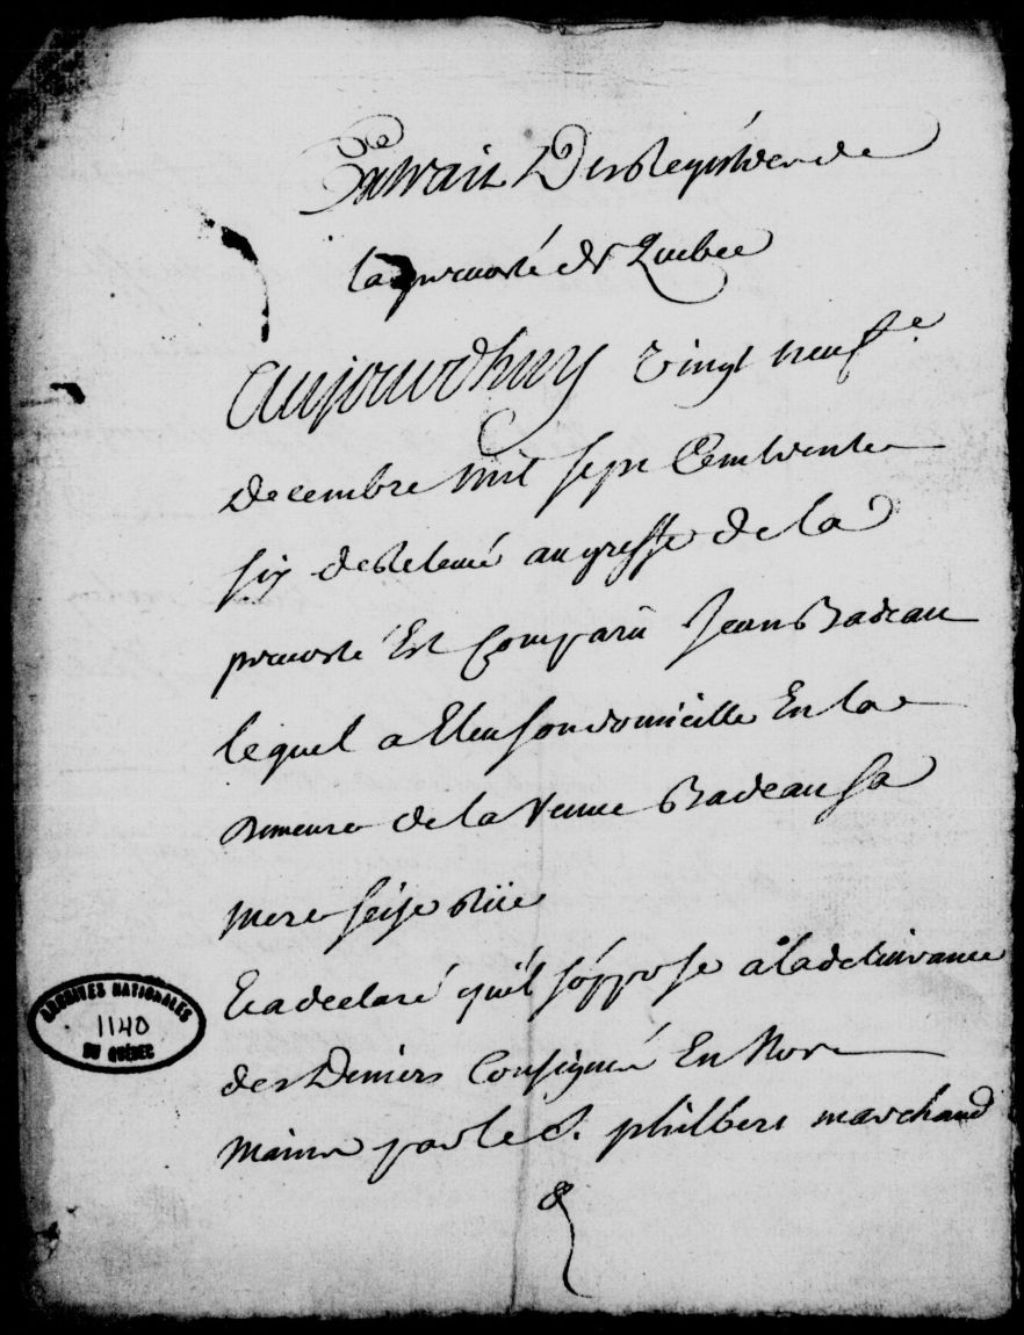 Extrait Des Registres de
la prevosté de Quebec
Aujourdhuy vingt neuf.e
Decembre mil sept Cent trente
six de Relevé au greffe de la
prevosté Est Comparu Jean Badeau
lequel a Eleu son domicille En la
demeure de la Veuve Badeau sa
mere seise Rüe
Et a declaré qu'il s'oppose a la delivrance
des Deniers Consignés En Nos
mains par le S. philbert marchand
ARCHIVES NATIONALES
1140
DU QUÉBEC